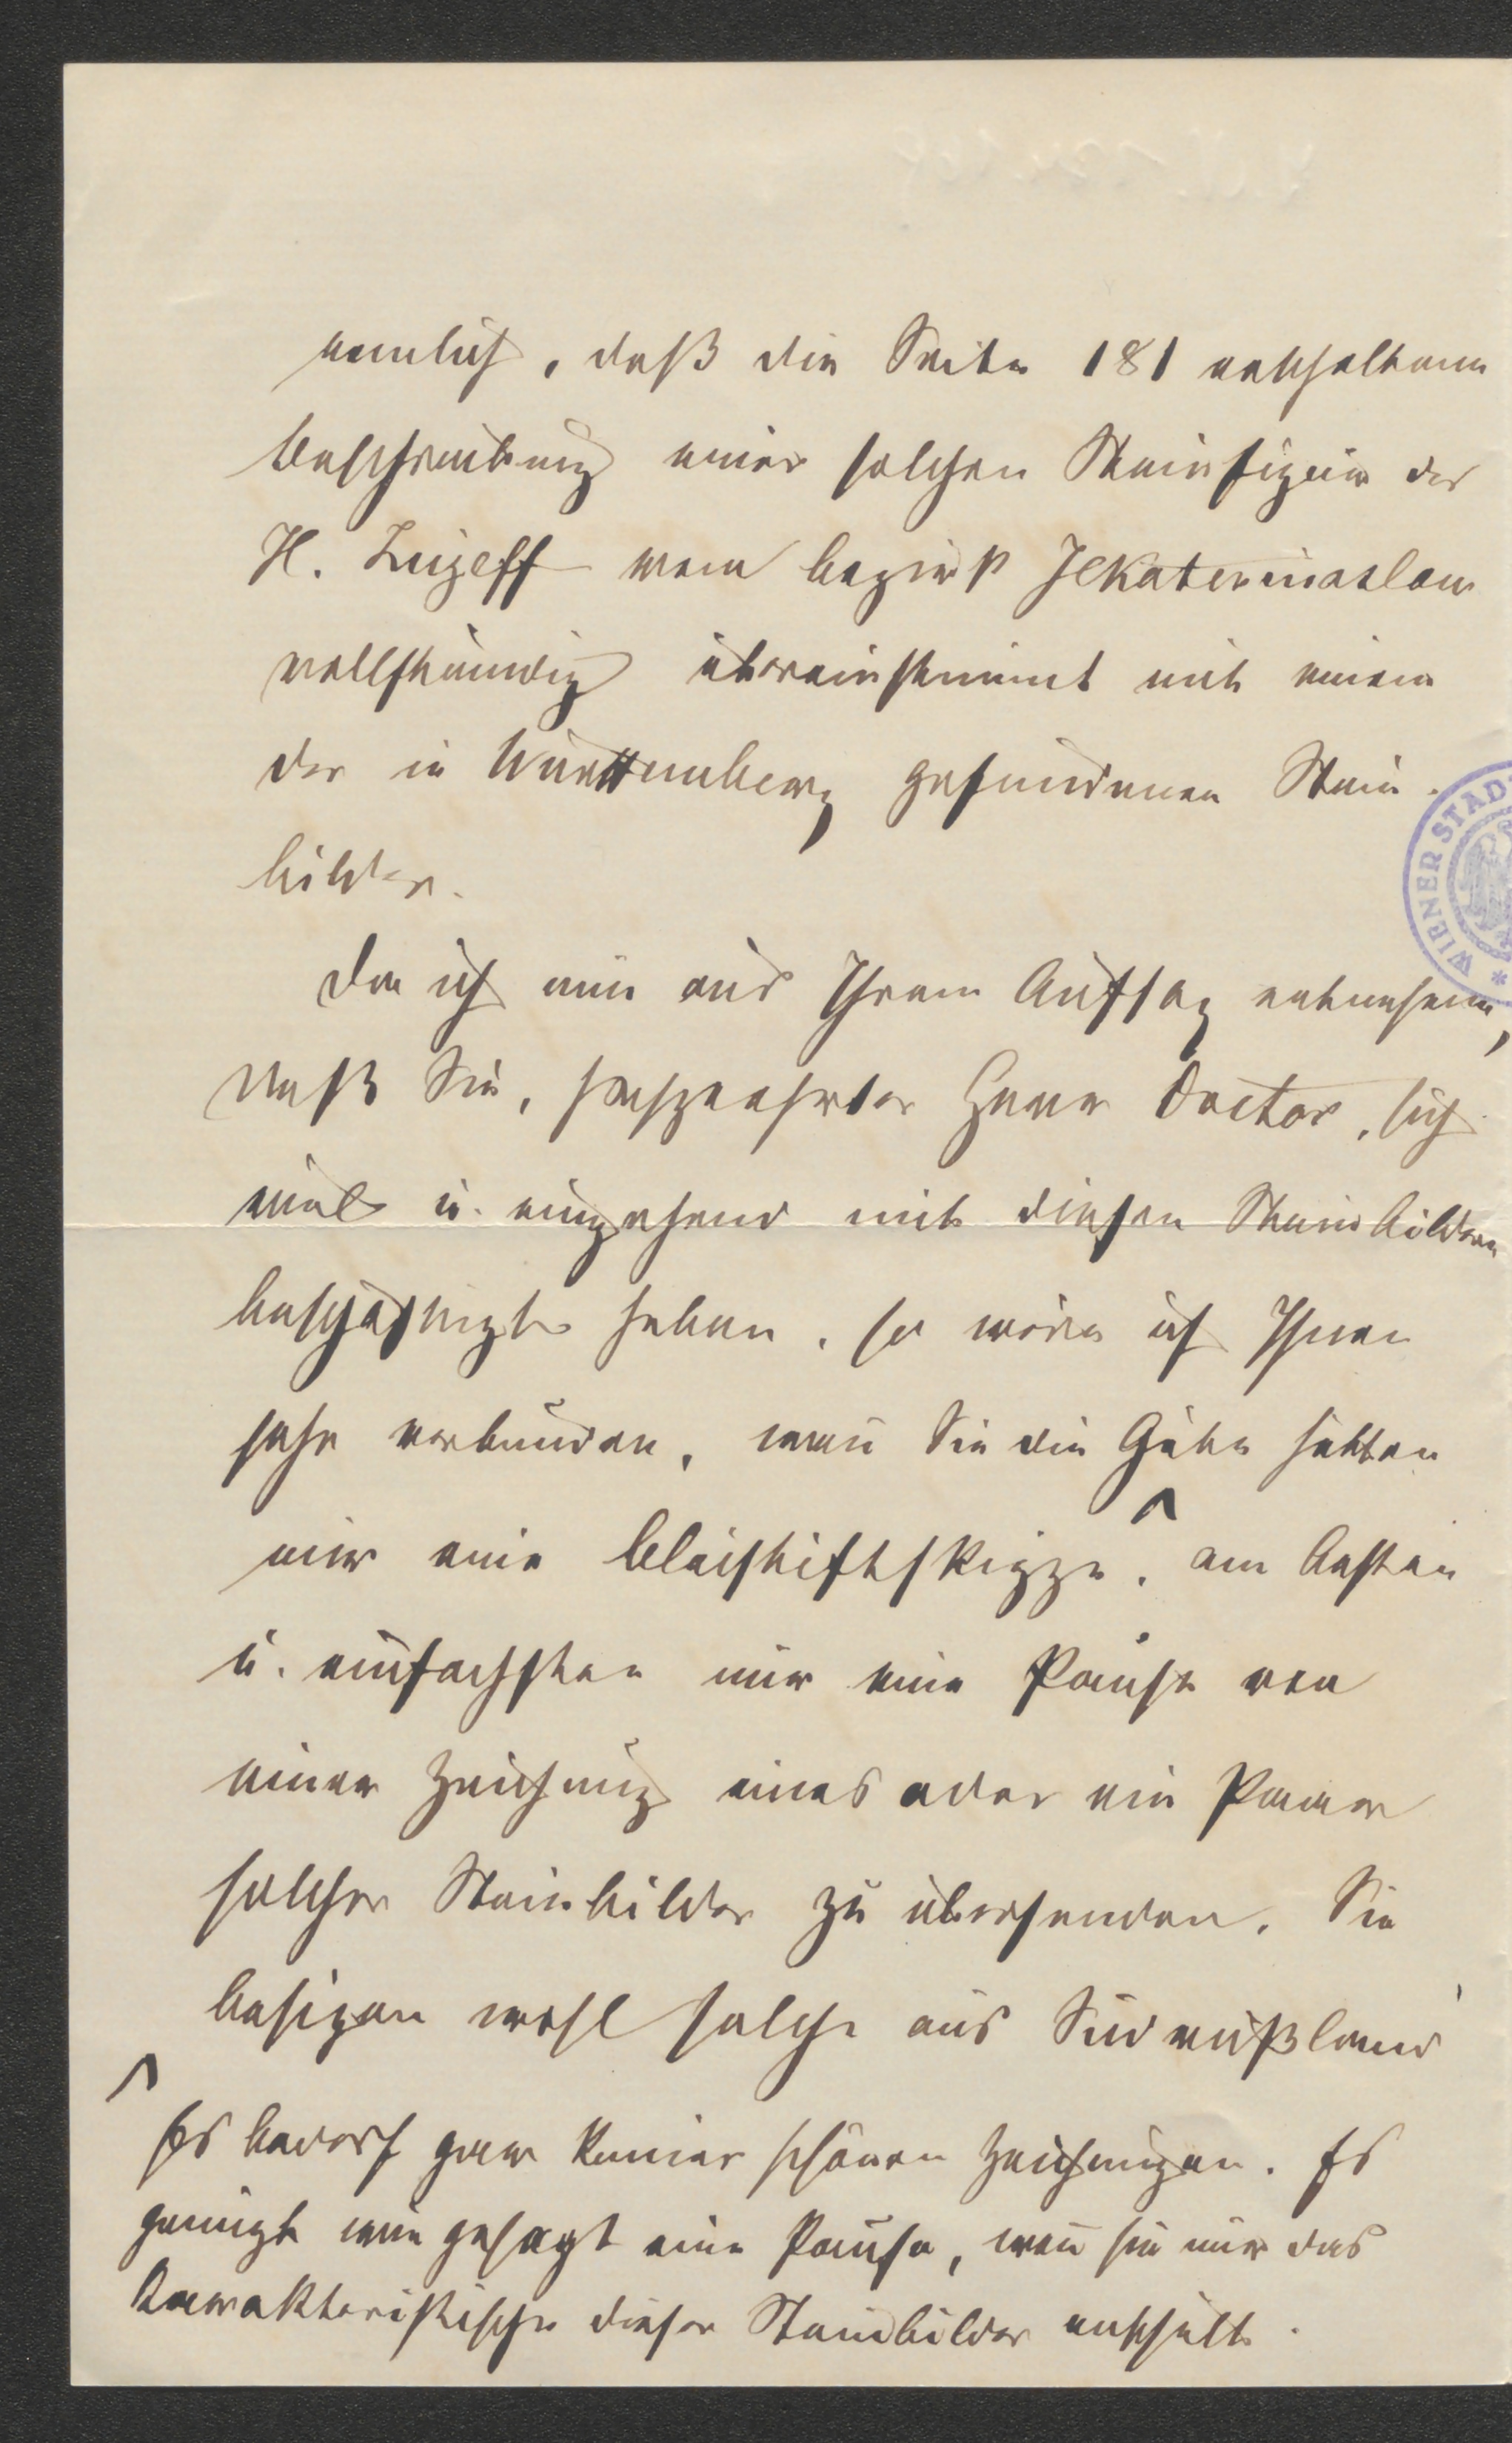 nemlich, daß die Seite 181 enthaltene
Beschreibung einer solchen Steinfigur des
H. Zujeff vom Bezirk Jekaterinoslaw
vollständig übereinstimmt mit einem
der in Württemberg gefundenen Stein-
bilder.
Da ich nun aus Ihrem Aufsaz entnehme,
daß Sie, hochgeehrter Herr Doctor, sich
viel u. eingehend mit diesen Steinbildern
beschäftigt haben, so wäre ich Ihnen
sehr verbunden, wenn Sie die Güte hätten
mir eine Bleistiftskizze, ^ am besten
u. einfachsten nur eine Pause von
einer Zeichnung eines oder ein Paar
solcher Steinbilder zu übersenden. Sie
besizen wohl solche aus Südrußland
^ Es bedarf gar keiner schönen Zeichnungen. Es
genügt wie gesagt eine Pause, wenn sie nur das
Karakteristische dieser Steinbilder enthält.
WIENER STAD